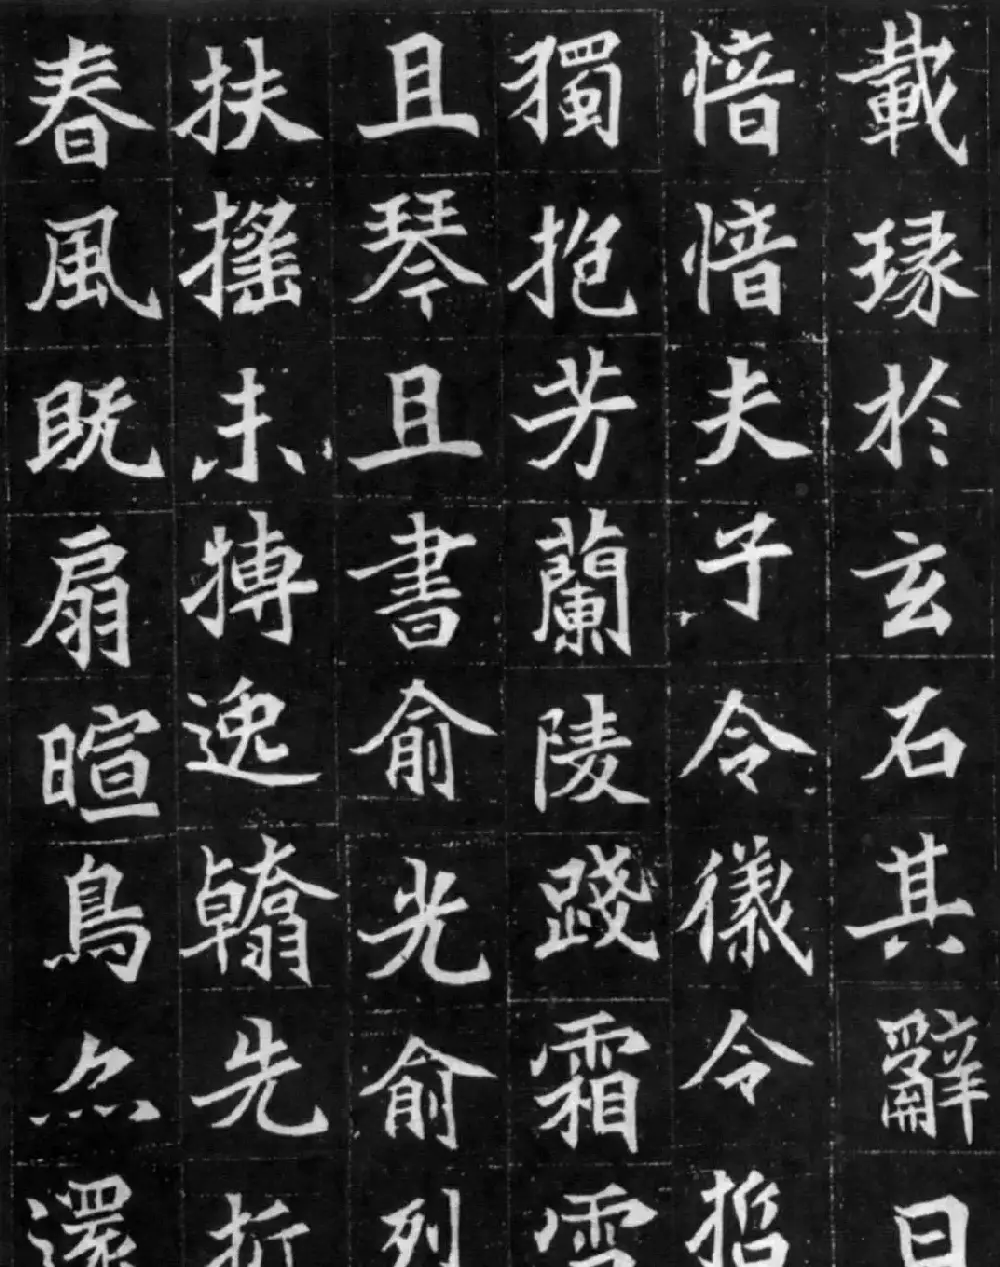 載琭於玄石其辭曰
愔愔夫子令儀令哲
獨抱芳蘭陵踐霜雪
且琴且書俞光俞列
扶搖未搏逸翰先折
春風既扇暄鳥亦還